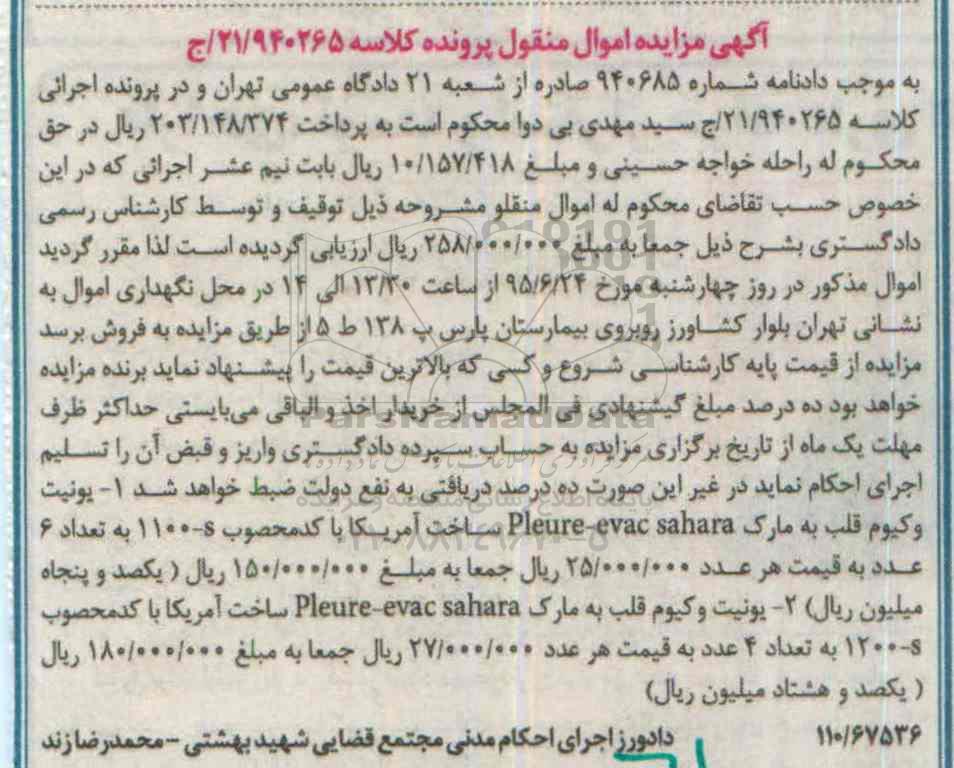 آگهی مزایده اموال منقول پرونده کلاسه ۲۱/۹۴۰۲۶۵/ج
به موجب دادنامه شماره ۹۴۰۶۸۵ صادره از شعبه ۲۱ دادگاه عمومی تهران و در پرونده اجرائی
کلاسه ۲۱/۹۴۰۲۶۵/ج سید مهدی بی دوا محکوم است به پرداخت ۲۰۳/۱۴۸/۳۷۴ ریال در حق
محکوم له راحله خواجه حسینی و مبلغ ۱۰/۱۵۷/۴۱۸ ریال بابت نیم عشر اجرائی که در این
خصوص حسب تقاضای محکوم له اموال منقلو مشروحه ذیل توقیف و توسط کارشناس رسمی
دادگستری بشرح ذیل جمعا به مبلغ ۲۵۸/۰۰۰/۰۰۰ ریال ارزیابی گردیده است لذا مقرر گردید
اموال مذکور در روز چهارشنبه مورخ ۹۵/۶/۲۴ از ساعت ۱۳/۳۰ الی ۱۴ در محل نگهداری اموال به
نشانی تهران بلوار کشاورز روبروی بیمارستان پارس پ ۱۳۸ ط ۵ از طریق مزایده به فروش برسد
مزایده از قیمت پایه کارشناسی شروع و کسی که بالاترین قیمت را پیشنهاد نماید برنده مزایده
خواهد بود ده درصد مبلغ گیشنهادی فی المجلس از خریدار اخذ و الباقی می‌بایستی حداکثر ظرف
مهلت یک ماه از تاریخ برگزاری مزایده به حساب سپرده دادگستری واریز و قبض آن را تسلیم
اجرای احکام نماید در غیر این صورت ده درصد دریافتی به نفع دولت ضبط خواهد شد ۱- یونیت
وکیوم قلب به مارک Pleure-evac sahara ساخت آمریکا با کدمحصوب ۱۱۰۰-s به تعداد ۶
عدد به قیمت هر عدد ۲۵/۰۰۰/۰۰۰ ریال جمعا به مبلغ ۱۵۰/۰۰۰/۰۰۰ ریال ( یکصد و پنجاه
میلیون ریال) ۲- یونیت وکیوم قلب به مارک Pleure-evac sahara ساخت آمریکا با کدمحصوب
۱۲۰۰-s به تعداد ۴ عدد به قیمت هر عدد ۲۷/۰۰۰/۰۰۰ ریال جمعا به مبلغ ۱۸۰/۰۰۰/۰۰۰ ریال
( یکصد و هشتاد میلیون ریال)
۱۱۰/۶۷۵۳۶ دادورز اجرای احکام مدنی مجتمع قضایی شهید بهشتی - محمدرضا زند
ParsNamadData